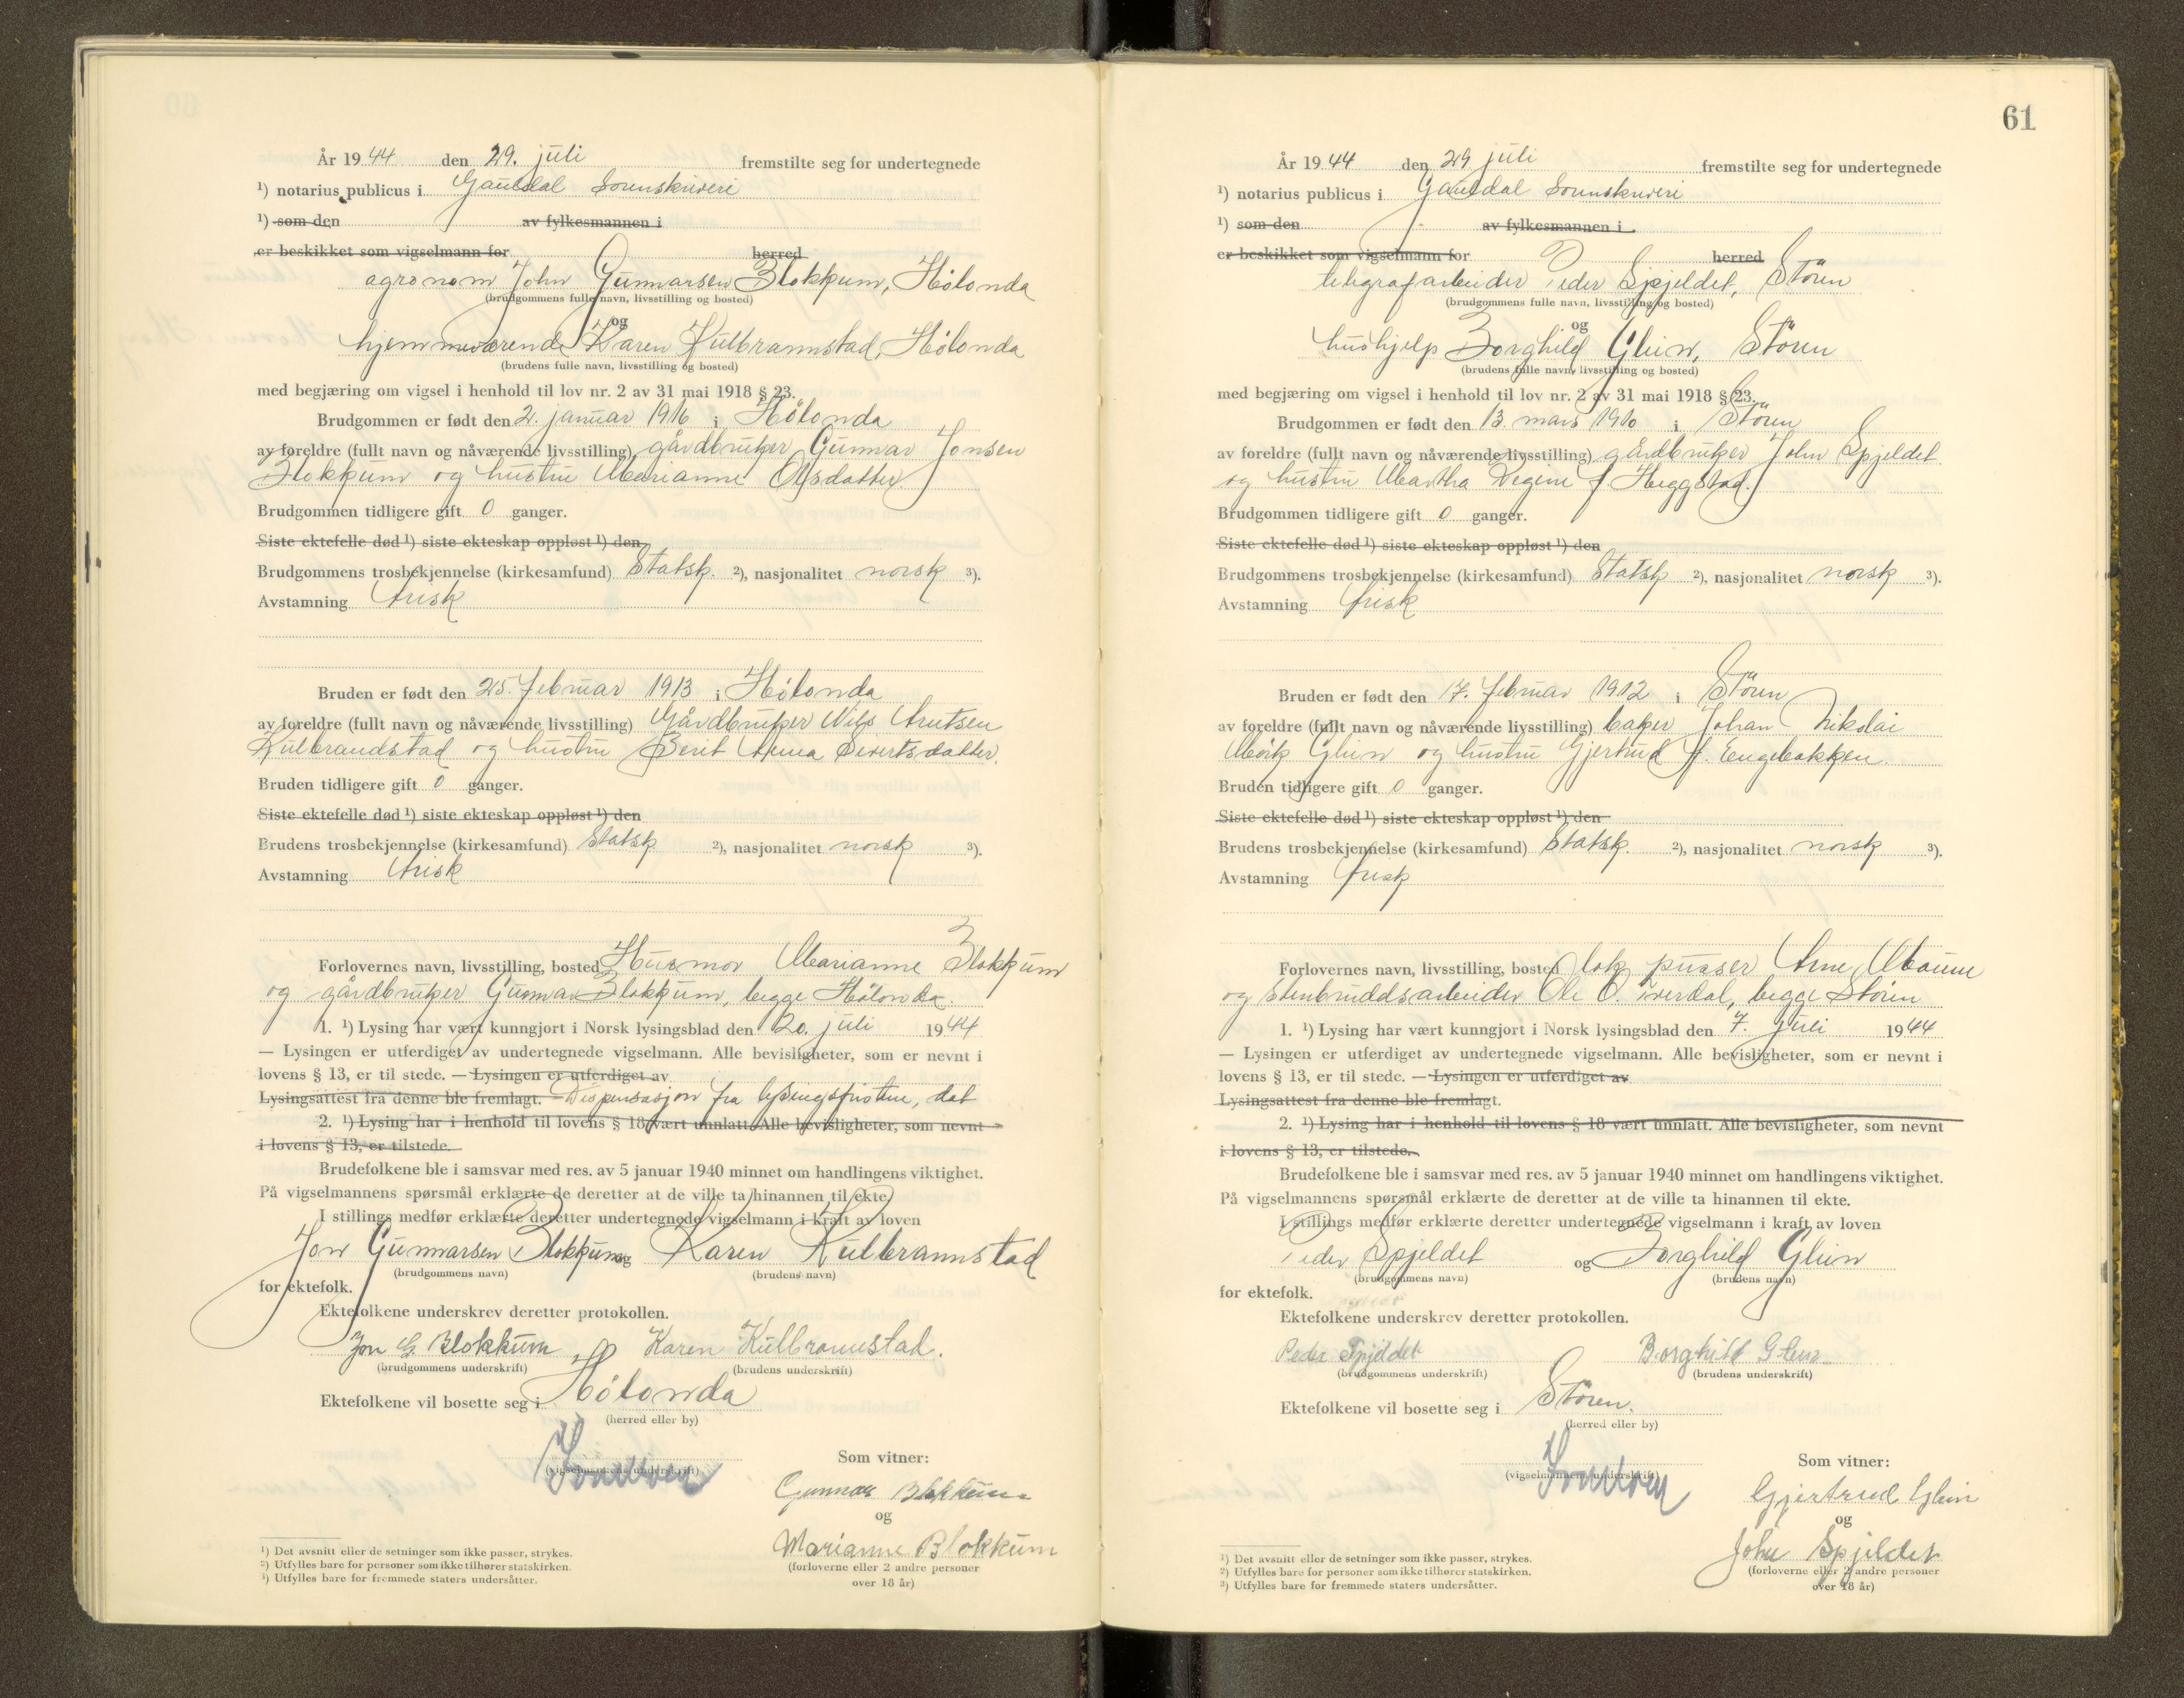 År 1944 den 29. juli fremstilte seg for undertegnede
¹) notarius publicus i Gauldal Sorenskriveri
¹) som den av fylkesmannen i
er beskikket som vigselmann for herred
agronom John Gunnarsen Blokkum, Hölonda
(brudgommens fulle navn, livsstilling og bosted)
og
hjemmeværende Karen Kulbrannstad, Hölonda
(brudens fulle navn, livsstilling og bosted)
med begjæring om vigsel i henhold til lov nr. 2 av 31 mai 1918 § 23.
Brudgommen er født den 2. januar 1916 i Hölonda
av foreldre (fullt navn og nåværende livsstilling) gårdbruker Gunnar Jonsen
Blokkum og hustru Marianne Olsdatter
Brudgommen tidligere gift 0 ganger.
Siste ektefelle død ¹) siste ekteskap oppløst ¹) den
Brudgommens trosbekjennelse (kirkesamfund) Statsk. ²), nasjonalitet norsk ³).
Avstamning Arisk
Bruden er født den 25. februar 1913 i Hölonda
av foreldre (fullt navn og nåværende livsstilling) Gårdbruker Nils Arntsen
Kulbrandstad og hustru Berit Anna Sivertsdatter.
Bruden tidligere gift 0 ganger.
Siste ektefelle død ¹) siste ekteskap oppløst ¹) den
Brudens trosbekjennelse (kirkesamfund) Statsk ²), nasjonalitet norsk ³).
Avstamning Arisk
Forlovernes navn, livsstilling, bosted Husmor Marianne Blokkum
og gårdbruker Gunnar Blokkum, begge Hölonda.
1. ¹) Lysing har vært kunngjort i Norsk lysingsblad den 20. juli 1944
— Lysingen er utferdiget av undertegnede vigselmann. Alle bevisligheter, som er nevnt i
lovens § 13, er til stede. — Lysingen er utferdiget av
Lysingsattest fra denne ble fremlagt. Dispensasjon fra lysingsfristen, dat
2. ¹) Lysing har i henhold til lovens § 18 vært unnlatt. Alle bevisligheter, som nevnt
i lovens § 13, er tilstede.
Brudefolkene ble i samsvar med res. av 5 januar 1940 minnet om handlingens viktighet.
På vigselmannens spørsmål erklærte de deretter at de ville ta hinannen til ekte.
I stillings medfør erklærte deretter undertegnede vigselmann i kraft av loven
Jon Gunnarsen Blokkum og Karen Kulbrannstad
(brudgommens navn) (brudens navn)
for ektefolk.
Ektefolkene underskrev deretter protokollen.
Jon G Blokkum Karen Kulbrannstad.
(brudgommens underskrift) (brudens underskrift)
Ektefolkene vil bosette seg i Hölonda
(herred eller by)
(vigselmannens underskrift)
Som vitner:
Gunnar Blokkum
og
Marianne Blokkum
(forloverne eller 2 andre personer
over 18 år)
¹) Det avsnitt eller de setninger som ikke passer, strykes.
²) Utfylles bare for personer som ikke tilhører statskirken.
³) Utfylles bare for fremmede staters undersåtter.
61
År 1944 den 29 juli fremstilte seg for undertegnede
¹) notarius publicus i Gauldal Sorenskriveri
¹) som den av fylkesmannen i
er beskikket som vigselmann for herred
telegrafarbeider Peder Spjeldet, Stören
(brudgommens fulle navn, livsstilling og bosted)
og
hushjelp Borghild Glein, Stören
(brudens fulle navn, livsstilling og bosted)
med begjæring om vigsel i henhold til lov nr. 2 av 31 mai 1918 § 23.
Brudgommen er født den 13. mars 1910 i Stören
av foreldre (fullt navn og nåværende livsstilling) gårdbruker John Spjeldet
og hustru Martha Regine f Heggstad.
Brudgommen tidligere gift 0 ganger.
Siste ektefelle død ¹) siste ekteskap oppløst ¹) den
Brudgommens trosbekjennelse (kirkesamfund) Statsk ²), nasjonalitet norsk ³).
Avstamning Arisk
Bruden er født den 17. februar 1912 i Stören
av foreldre (fullt navn og nåværende livsstilling) baker Johan Nikolai
Mörk Glein og hustru Gjertrud f. Engebakken.
Bruden tidligere gift 0 ganger.
Siste ektefelle død ¹) siste ekteskap oppløst ¹) den
Brudens trosbekjennelse (kirkesamfund) Statsk. ²), nasjonalitet norsk ³).
Avstamning Arisk
Forlovernes navn, livsstilling, bosted lok pusser Arne Moune
og Stenbruddsarbeider Ole O. Tverdal, begge Stören
1. ¹) Lysing har vært kunngjort i Norsk lysingsblad den 7. juli 1944
— Lysingen er utferdiget av undertegnede vigselmann. Alle bevisligheter, som er nevnt i
lovens § 13, er til stede. — Lysingen er utferdiget av
Lysingsattest fra denne ble fremlagt.
2. ¹) Lysing har i henhold til lovens § 18 vært unnlatt. Alle bevisligheter, som nevnt
i lovens § 13, er tilstede.
Brudefolkene ble i samsvar med res. av 5 januar 1940 minnet om handlingens viktighet.
På vigselmannens spørsmål erklærte de deretter at de ville ta hinannen til ekte.
I stillings medfør erklærte deretter undertegnede vigselmann i kraft av loven
Peder Spjeldet og Borghild Glein
(brudgommens navn) (brudens navn)
for ektefolk.
Ektefolkene underskrev deretter protokollen.
Peder Spjeldet Borghild Glein
(brudgommens underskrift) (brudens underskrift)
Ektefolkene vil bosette seg i Stören.
(herred eller by)
(vigselmannens underskrift)
Som vitner:
Gjertrud Glein
og
John Spjeldet
(forloverne eller 2 andre personer
over 18 år)
¹) Det avsnitt eller de setninger som ikke passer, strykes.
²) Utfylles bare for personer som ikke tilhører statskirken.
³) Utfylles bare for fremmede staters undersåtter.